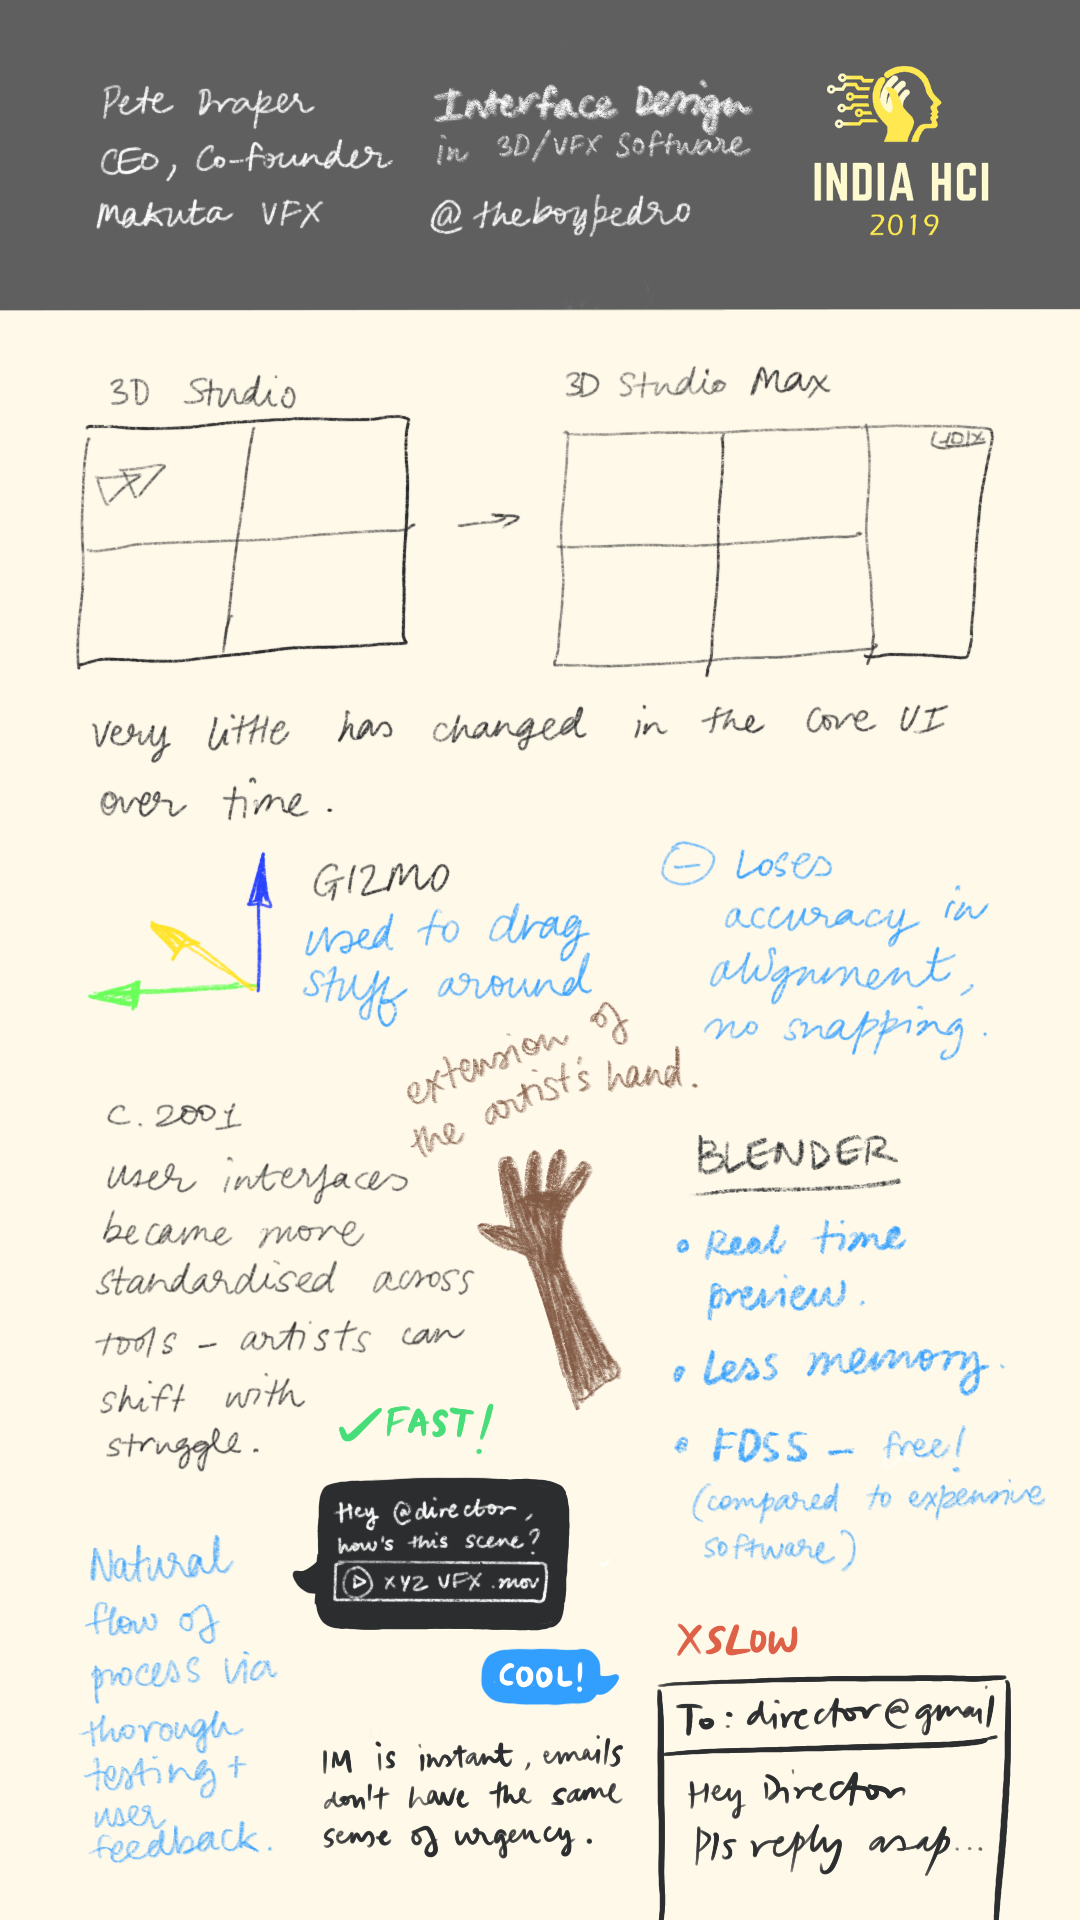 Pete Draper
CEO, Co-founder
Makuta VFX
Interface Design
in 3D/VFX Software
@theboypedro
INDIA HCI
2019
3D Studio
3D Studio Max
very little has changed in the core UI
over time.
GIZMO
used to drag
stuff around
Loses
accuracy in
alignment,
no snapping.
extension of
the artist's hand.
C. 2001
user interfaces
became more
standardised across
tools – artists can
shift with
struggle.
BLENDER
• Real time
preview.
• Less memory.
• FOSS – free!
(compared to expensive
software)
✓FAST!
Hey @director,
how's this scene?
XYZ VFX .mov
COOL!
Natural
flow of
process via
thorough
testing +
user
feedback.
IM is instant, emails
don't have the same
sense of urgency.
X SLOW
To: director@gmail
Hey Director
Pls reply asap...